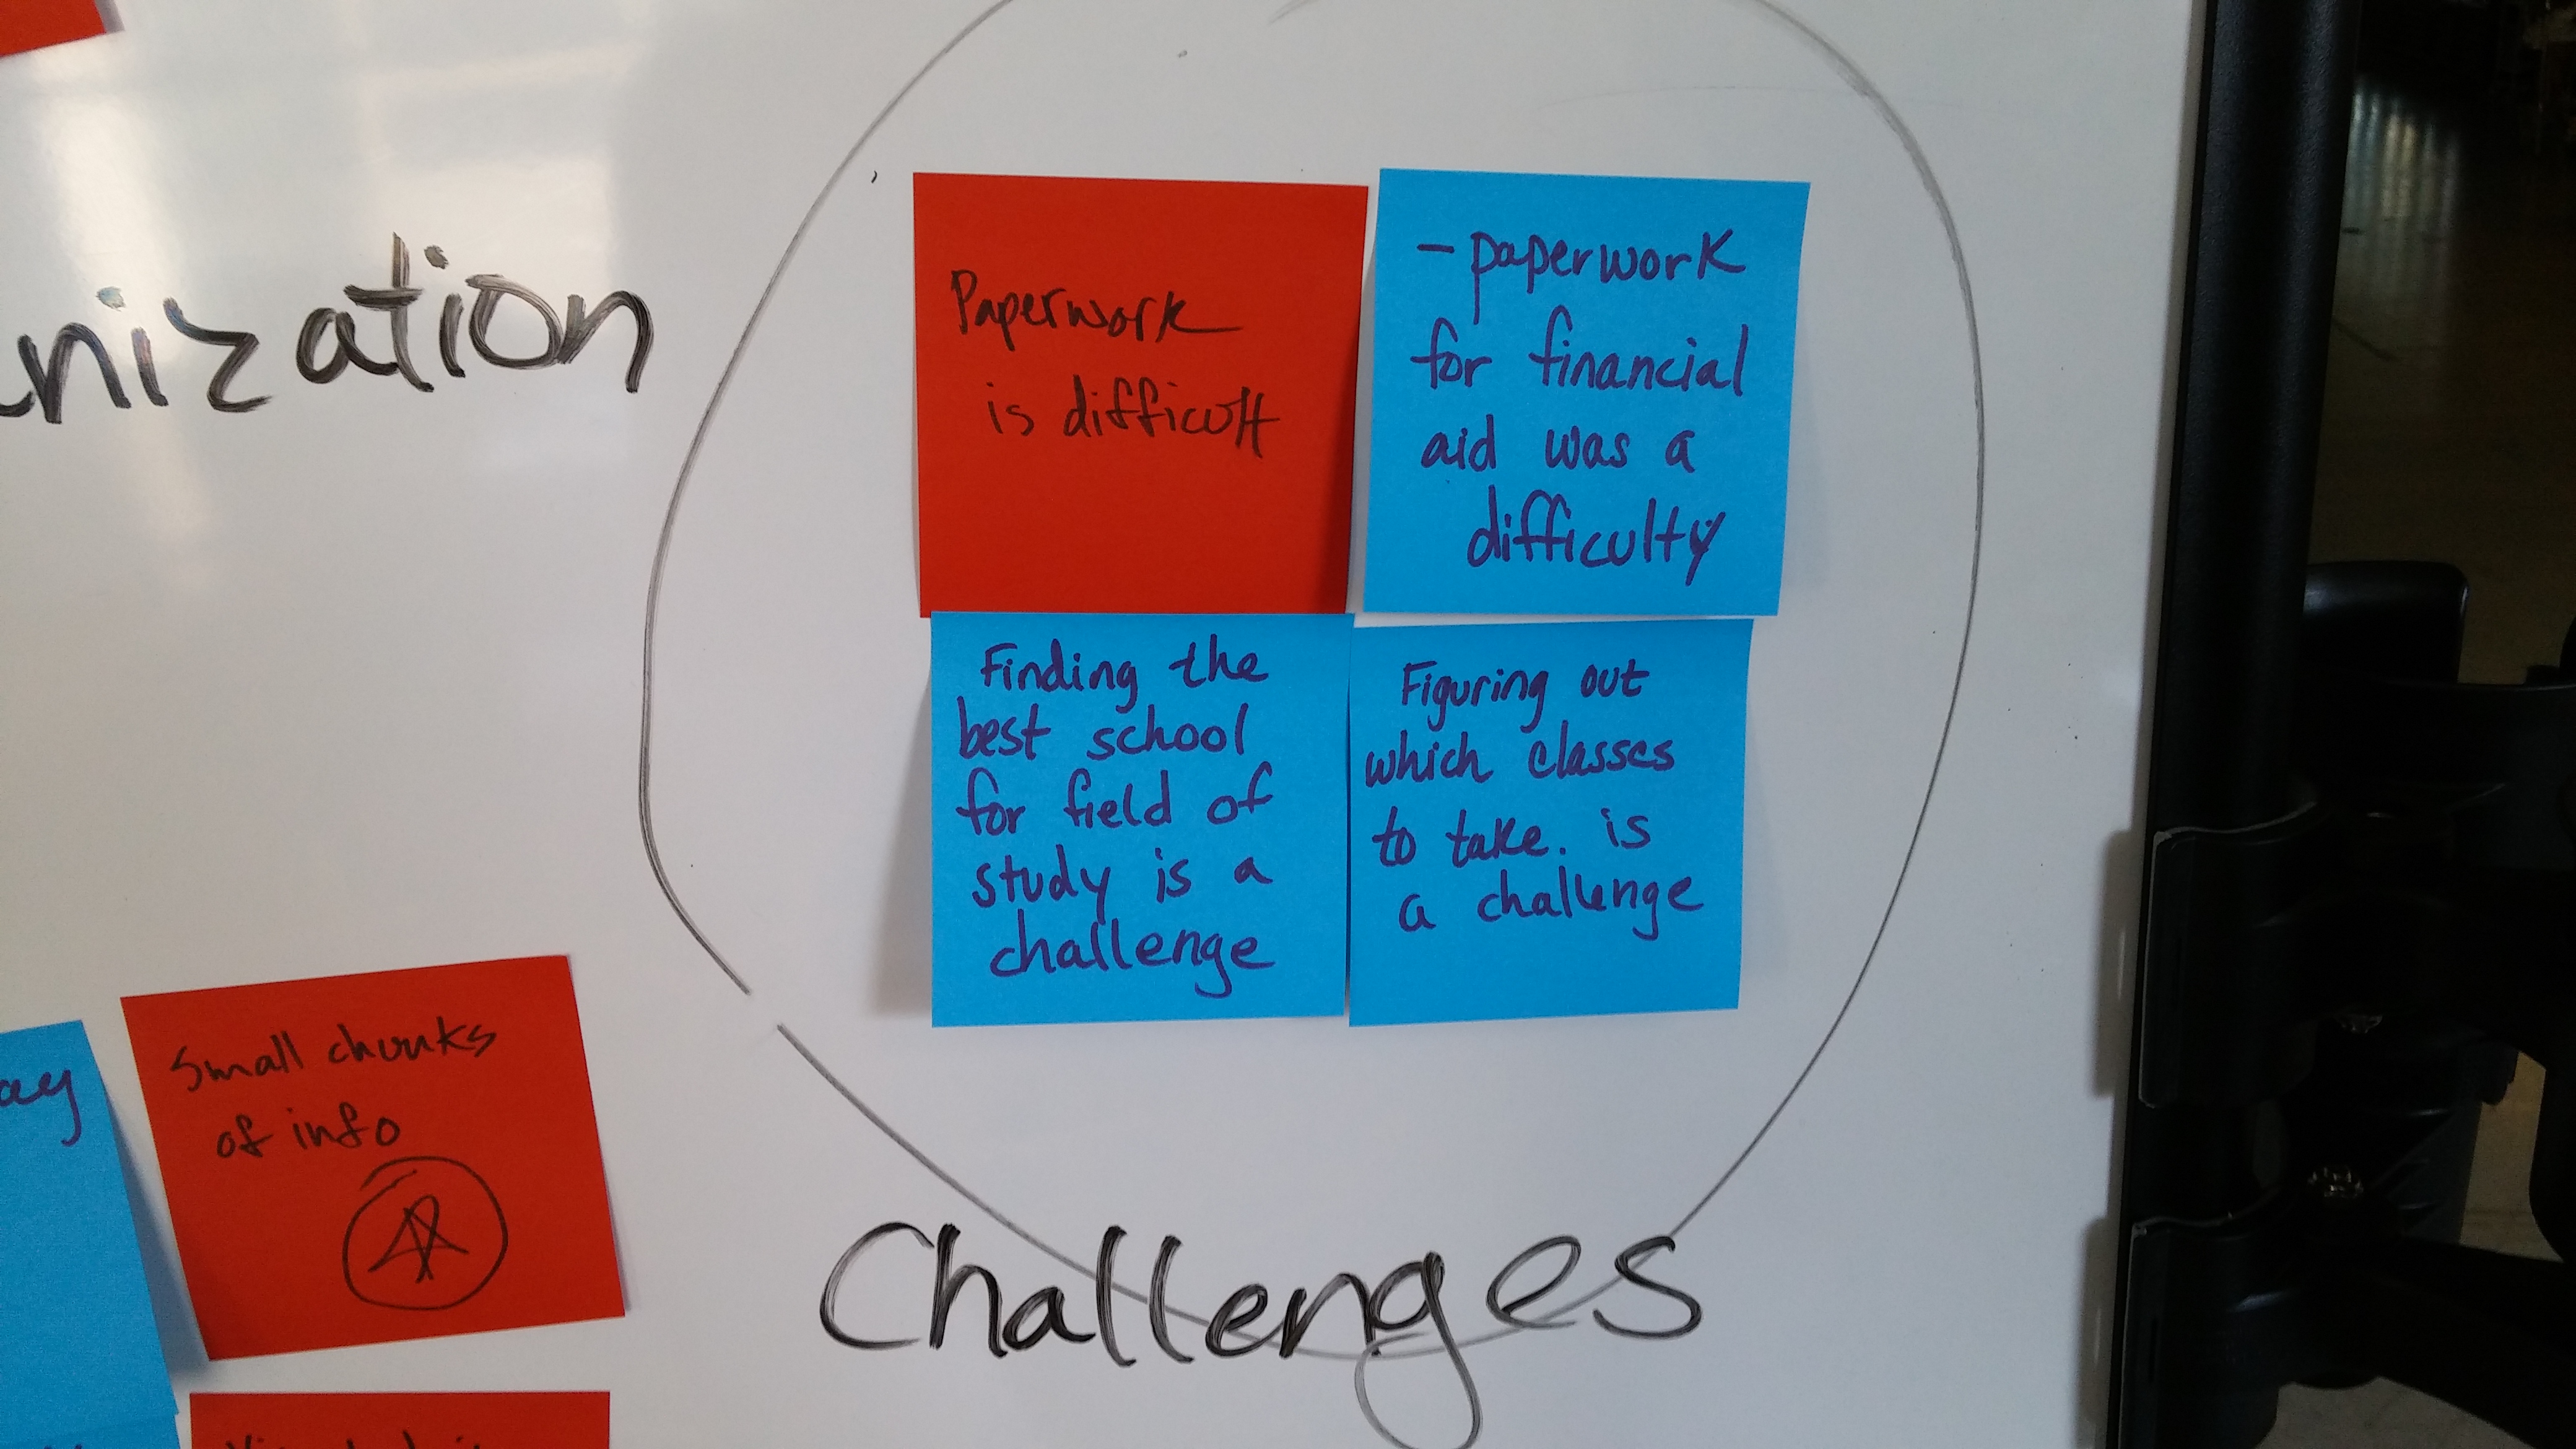 nization
Paperwork
is difficult
- paperwork
for financial
aid was a
difficulty
Finding the
best school
for field of
study is a
challenge
Figuring out
which classes
to take. is
a challenge
Challenges
ay
Small chunks
of info